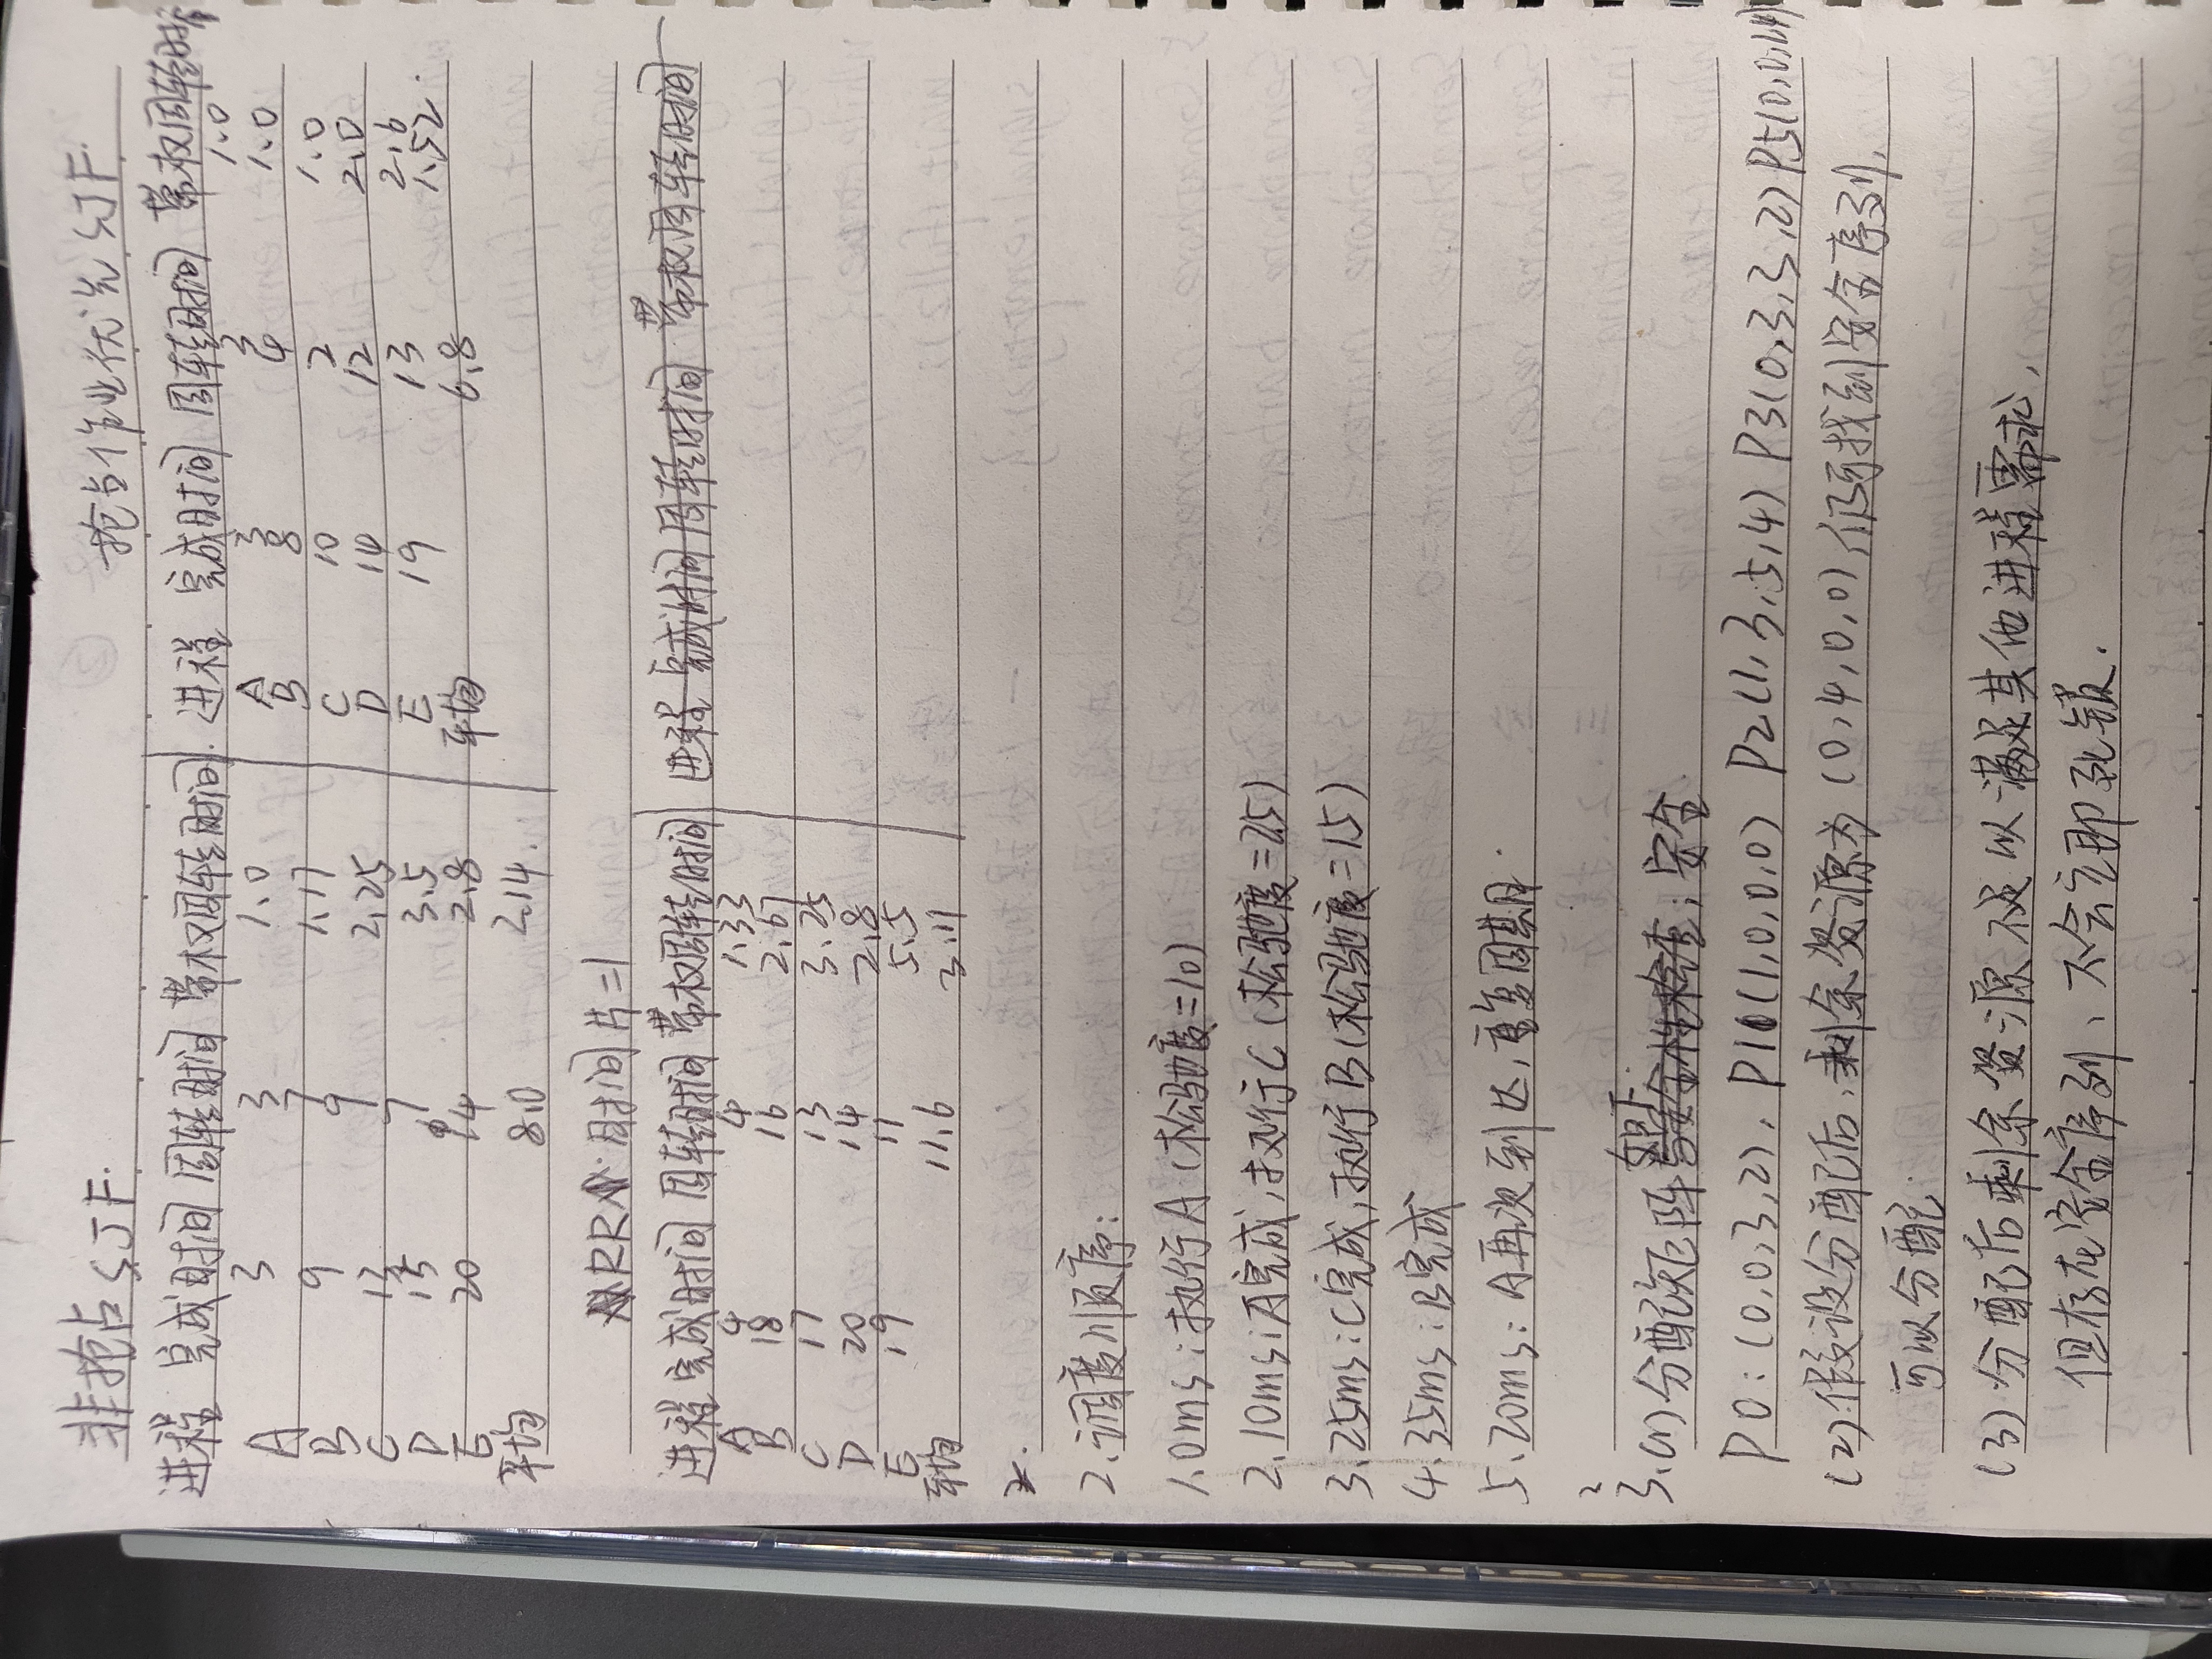 非抢占SJF.
抢占作业优先SJF.
进程 完成时间 周转时间 带权周转时间
A 3 3 1.0
B 9 7 1.17
C 13 9 2.25
D 15 7 3.5
E 20 14 2.8
平均 8.0 2.14.
进程 完成时间 周转时间 带权周转时间
A 3 3 1.0
B 8 4 1.0
C 10 2 1.0
D 14 12 2.0
E 19 13 2.6
平均 6.8 1.52
RR 时间片=1
进程 完成时间 周转时间 带权周转时间
进程 完成时间 周转时间 带权周转时间
A 4 4 1.33
B 18 16 2.67
C 17 13 3.25
D 20 14 2.8
E 19 11 5.5
平均 11.6 3.11
2.
2.调度顺序:
1.0ms:执行A(松驰度=10)
2.10ms:A完成,执行C(松驰度=25)
3.25ms:C完成,执行B(松驰度=15)
4.35ms:B完成
5.20ms:A再次到达,重复周期.
3.(1)分配矩阵如下:安全.
P0:(0,0,3,2). P1(1,0,0,0) P2(1,3,5,4) P3(0,3,3,2) P5(0,0,1,4)
(2)假设分配后,剩余资源为(0,4,0,0)仍可找到安全序列,
可以分配.
(3)分配后剩余资源不足以满足其他进程需求,
但存在安全序列、不会立即死锁.